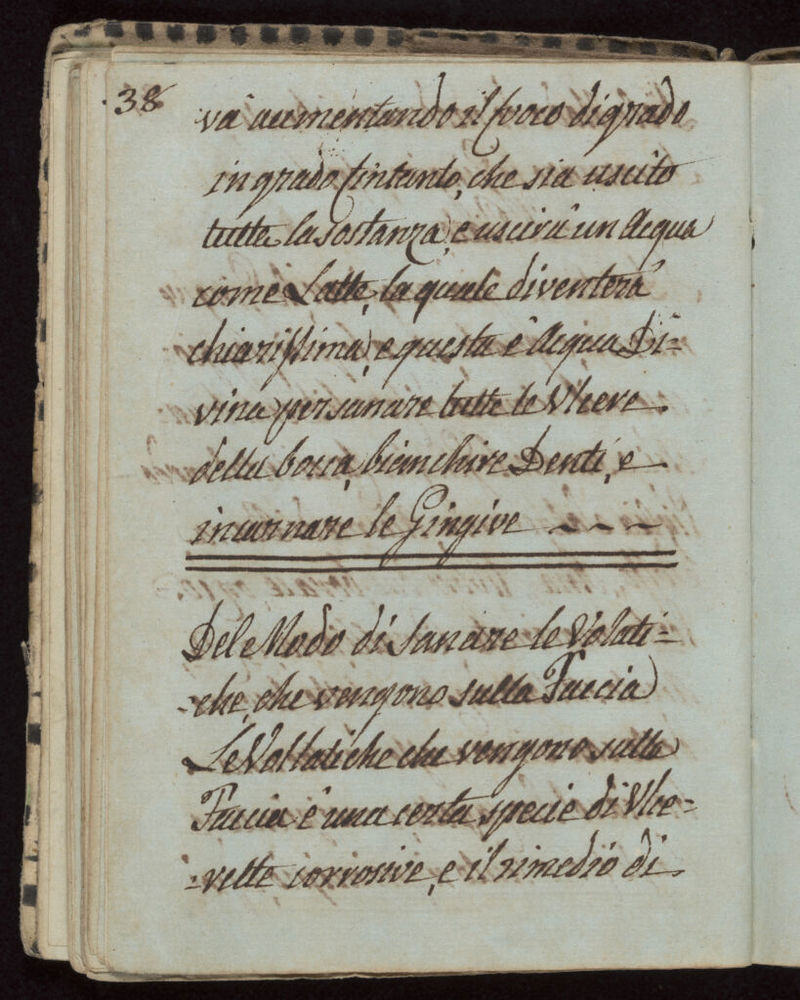 38
và aumentando il fuoco di grado
in grado fintanto, che sia uscito
tutta la sostanza, e uscirà un Acqua
come Latte, la quale diventerà
chiarissima, e questa è Acqua Di=
vina per sanare tutte le Vlcere
della bocca, bianchire Denti, e
incarnare le Gingive
Del Modo di sanare le Volati=
=che, che vengono sulla Faccia
Le Vollatiche che vengono sulla
Faccia è una certa specie di Vlce=
=rette corrosive, e il rimedio di